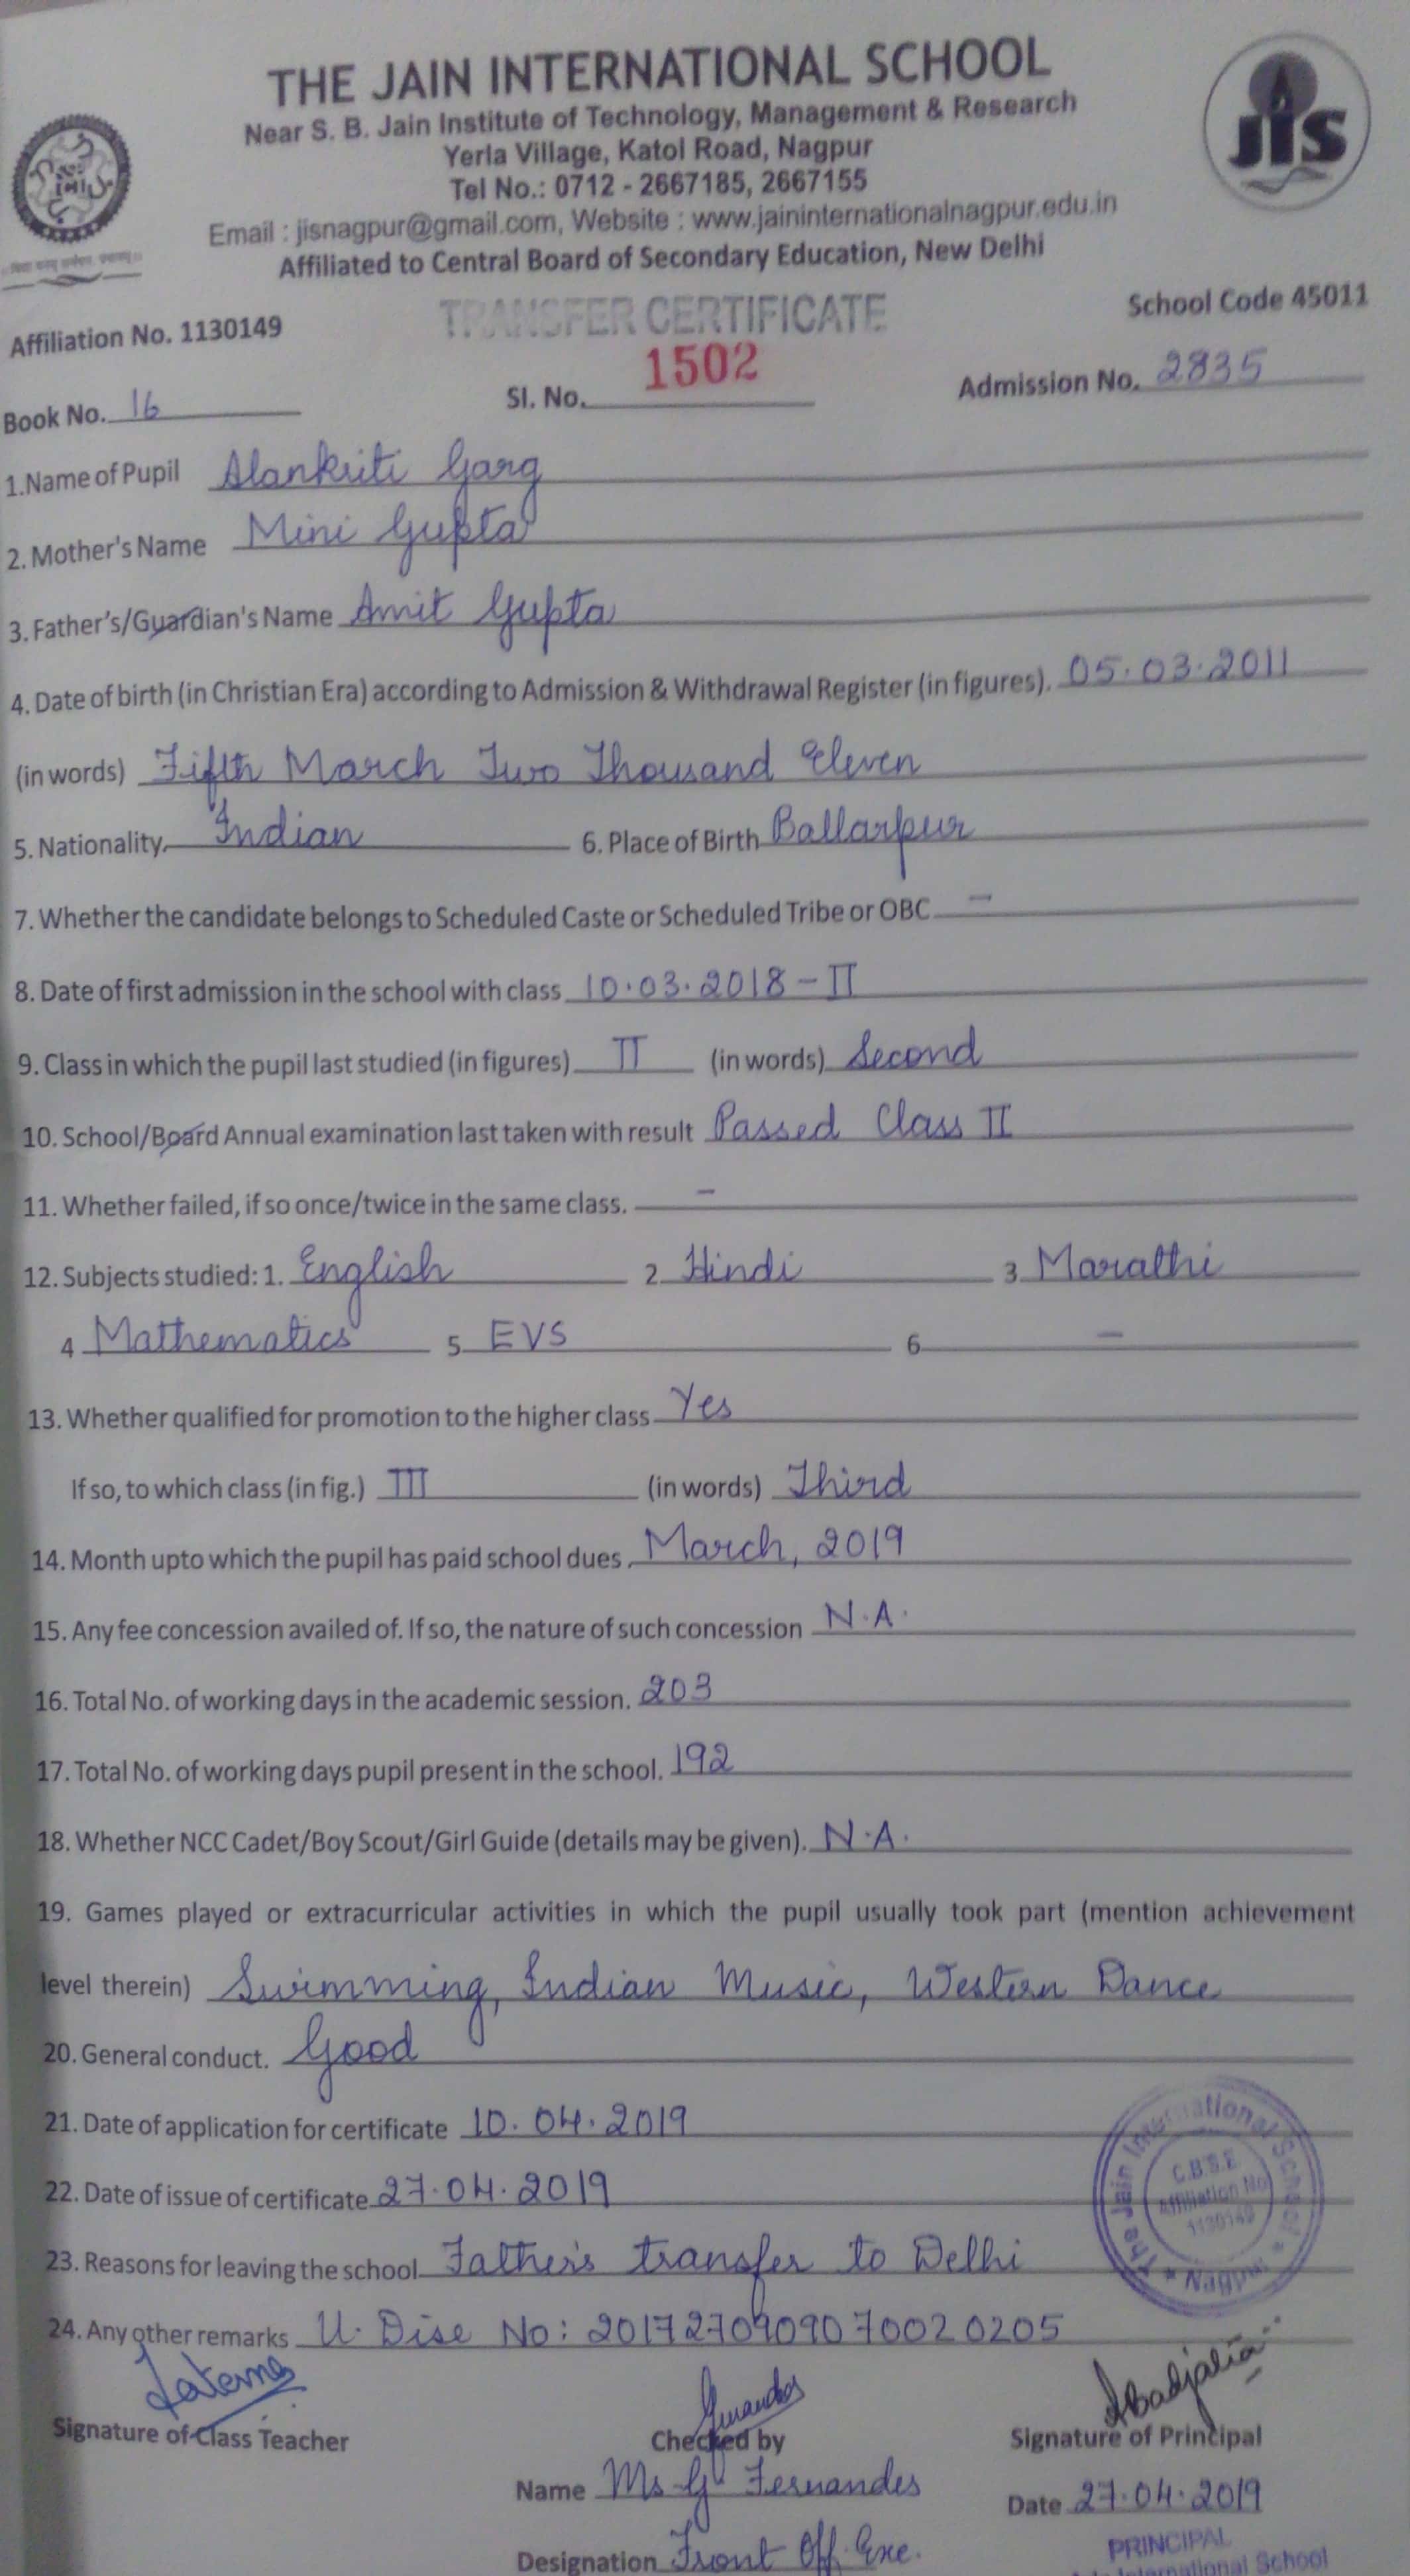 THE JAIN INTERNATIONAL SCHOOL
Near S. B. Jain Institute of Technology, Management & Research
Yerla Village, Katol Road, Nagpur
Tel No.: 0712 - 2667185, 2667155
Email : jisnagpur@gmail.com, Website : www.jaininternationalnagpur.edu.in
Affiliated to Central Board of Secondary Education, New Delhi
JIS
Affiliation No. 1130149 TRANSFER CERTIFICATE School Code 45011
Book No. 16 Sl. No. 1502 Admission No. 2835
1.Name of Pupil Alankriti Garg
2. Mother's Name Mini Gupta
3. Father's/Guardian's Name Amit Gupta
4. Date of birth (in Christian Era) according to Admission & Withdrawal Register (in figures). 05.03.2011
(in words) Fifth March Two Thousand Eleven
5. Nationality. Indian 6. Place of Birth Ballarpur
7. Whether the candidate belongs to Scheduled Caste or Scheduled Tribe or OBC –
8. Date of first admission in the school with class 10.03.2018 – II
9. Class in which the pupil last studied (in figures) II (in words) Second
10. School/Board Annual examination last taken with result Passed Class II
11. Whether failed, if so once/twice in the same class. –
12. Subjects studied: 1. English 2. Hindi 3. Marathi
4 Mathematics 5 EVS 6 –
13. Whether qualified for promotion to the higher class Yes
If so, to which class (in fig.) III (in words) Third
14. Month upto which the pupil has paid school dues. March, 2019
15. Any fee concession availed of. If so, the nature of such concession N.A.
16. Total No. of working days in the academic session. 203
17. Total No. of working days pupil present in the school. 192
18. Whether NCC Cadet/Boy Scout/Girl Guide (details may be given). N.A.
19. Games played or extracurricular activities in which the pupil usually took part (mention achievement
level therein) Swimming, Indian Music, Western Dance
20. General conduct. Good
21. Date of application for certificate 10.04.2019
22. Date of issue of certificate 27.04.2019
23. Reasons for leaving the school Father's transfer to Delhi
24. Any other remarks U. Dise No: 2017270909070020205
The Jain International School * Nagpur *
C.B.S.E
Affiliation No
1130149
Signature of Class Teacher Checked by Signature of Principal
Name Ms G Fernandes Date 27.04.2019
Designation Front Off. Exe. PRINCIPAL
International School